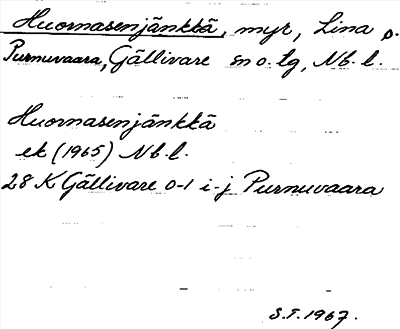 Huornasenjänkkä, myr, Lina o.
Purnuvaara, Gällivare sn o. lg, Nb. l.
Huornasenjänkkä
ek (1965) Nb. l.
28 K Gällivare 0-1 i-j Purnuvaara
S.T. 1967.